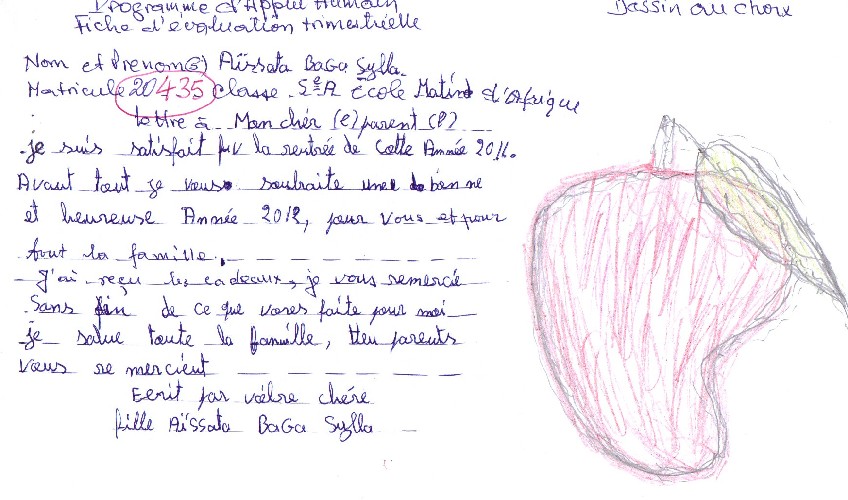 Programme d'Appui Humain
Fiche d'évaluation trimestrielle
Dassin au choix
Nom et Prenom(s) Aïssata BaGa Sylla.
Matricule 20435 classe. 5eA École Matins d'Afrique
lettre à Mon cher (e) parent (e)
je suis satisfait pu la rentrée de cette Année 2011.
Avant tout je vous souhaite une bonne
et heureuse Année 2012, pour vous et pour
tout la famille.
J'ai reçu les cadeaux, je vous remercie
Sans fin de ce que vous faite pour moi
je salue toute la famille, Meu parents
vous remercient
Ecrit par vôtre chére
fille Aïssata BaGa Sylla